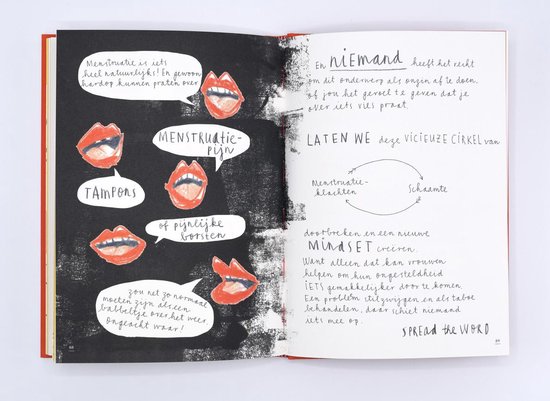 Menstruatie is iets
heel natuurlijks! En gewoon
hardop kunnen praten over
MENSTRUATIE-
PIJN
TAMPONS
of pijnlijke
borsten
zou net zo normaal
moeten zijn als een
babbeltje over het weer,
ongeacht waar!
En NIEMAND heeft het recht
om dit onderwerp als onzin af te doen,
of jou het gevoel te geven dat je
over iets vies praat.
LATEN WE deze VICIEUZE CIRKEL van
Menstruatie-
klachten
Schaamte
doorbreken en een nieuwe
MINDSET creëren.
Want alleen dat kan vrouwen
helpen om hun ongesteldheid
IETS gemakkelijker door te komen.
Een probleem stilzwijgen en als taboe
behandelen, daar schiet niemand
iets mee op.
SPREAD the WORD